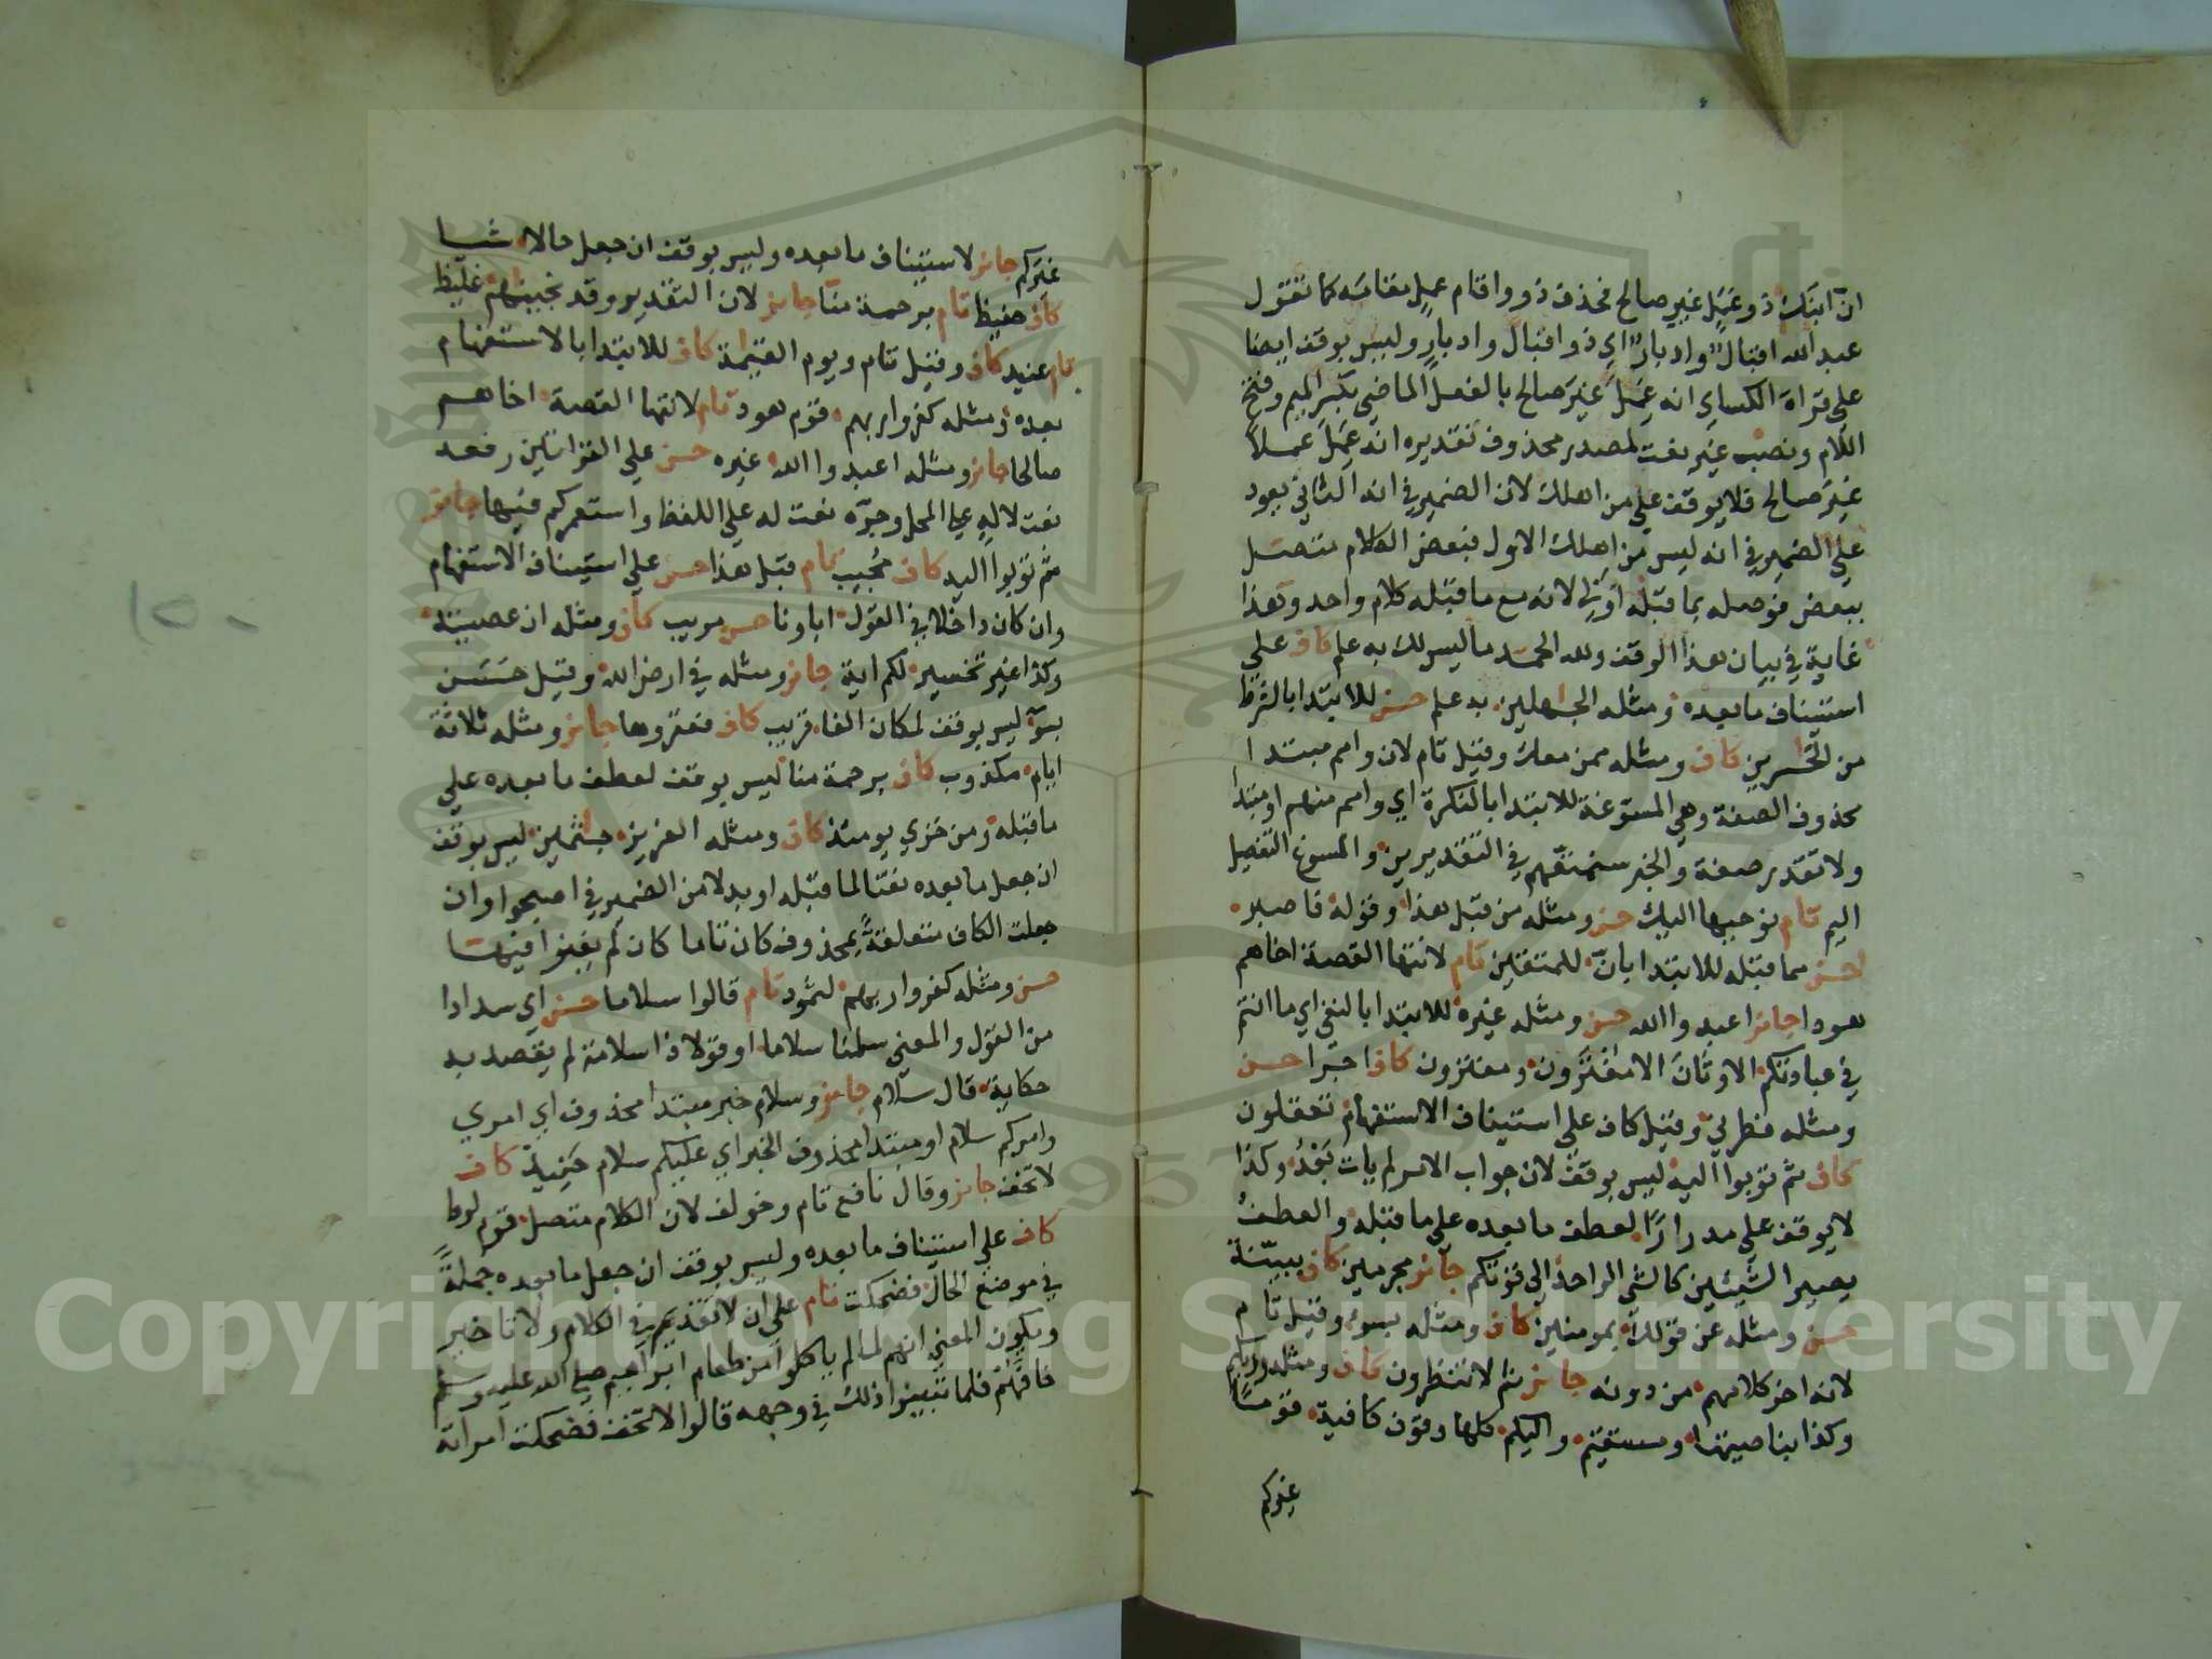 ان ابنك ذو عمل غير صالح فحذف ذو واقام عمل مقامه كما تقول
عبد الله اقبال وادبار اي ذو اقبال وادبار وليس بوقف ايضا
على قراة الكساي انه عمل غير صالح بالفعل الماضي بكسر الميم وفتح
اللام ونصب غير نعت لمصدر محذوف تقديره انه عمل عملا
غير صالح فلا يوقف علي من اهلك لان الضمير في انه الثاني يعود
علي الضمير في انه ليس من اهلك الاول فبعض الكلام متصل
ببعض فوصله بما قبله اولي لانه مع ما قبله كلام واحد وهذا
غاية في بيان هذا الوقف ولله الحمد ما ليس لك به علم كاف علي
استيناف ما بعده ومثله الجهلين به علم حسن للابتدا بالشرط
من الخسرين كاف ومثله ممن معك وقيل تام لان وامم مبتدا
محذوف الصفة وهي المسوغة للابتدا بالنكرة اي وامم منهم او مبتدا
ولا تقدر صفة والخبر سنمتعهم في التقديرين والمسوغ التفصيل
اليم تام نوحيها اليك حسن ومثله من قبل هذا وقوله فاصبر
احسن مما قبله للابتدا بان للمتقين تام لانتها القصة اخاهم
هودا جائز اعبدوا الله حسن ومثله غيره للابتدا بالنفي اي ما انتم
في عبادتكم الاوثان الا مفترون ومفترون كاف اجرا حسن
ومثله فطرني وقيل كاف علي استيناف الاستفهام تعقلون
كاف ثم توبوا اليه ليس بوقف لان جواب الامر لم يات بعد وكذا
لا يوقف على مدرارا لعطف ما بعده على ما قبله والعطف
يصير الشيئين كالشي الواحد الي قوتكم جائز مجرمين كاف ببينة
حسن ومثله عن قولك بمومنين كاف ومثله بسوء وقيل تام
لانه اخر كلامهم من دونه جائز ثم لا تنظرون كاف ومثله وربكم
وكذا بناصيتها ومستقيم واليكم كلها وقوف كافية قوما
غيركم
غيركم جائز لاستيناف ما بعده وليس بوقف ان جعل حالا شيا
كاف حفيظ تام برحمة منا جايز لان التقدير وقد نجيناهم غليظ
تام عنيد كاف وقيل تام ويوم القيمة كاف للابتدا بالاستفهام
بعده ومثله كفروا ربهم قوم هود تام لانتها القصة اخاهم
صالحا جائز ومثله اعبدوا الله غيره حسن علي القراتين رفعه
نعت لاله علي المحل وجره نعت له علي اللفظ واستعمركم فيها جائز
ثم توبوا اليه كاف مجيب تام قبل هذا حسن علي استيناف الاستفهام
وان كان داخلا في القول اباونا حسن مريب كاف ومثله ان عصيته
وكذا غير تخسير لكم اية جائز ومثله في ارض الله وقيل حسن
بسوء ليس بوقف لمكان الفا قريب كاف فعقروها جائز ومثله ثلاثة
ايام مكذوب كاف برحمة منا ليس بوقف لعطف ما بعده علي
ما قبله ومن خزي يومئذ كاف ومثله العزيز جثمين ليس بوقف
ان جعل ما بعده نعتا لما قبله او بدلا من الضمير في اصبحوا وان
جعلت الكاف متعلقة بمحذوف كان تاما كان لم يغنوا فيها
حسن ومثله كفروا ربهم لثمود تام قالوا سلاما حسن اي سدادا
من القول والمعني سلمنا سلاما او قولا ذا سلامة لم يقصد به
حكاية قال سلام جائز وسلام خبر مبتدا محذوف اي امري
وامركم سلام او مبتدا محذوف الخبر اي عليكم سلام حنيذ كاف
لا تخف جايز وقال نافع تام وخولف لان الكلام متصل قوم لوط
كاف على استيناف ما بعده وليس بوقف ان جعل ما بعده جملة
في موضع الحال فضحكت تام علي ان لا تقديم في الكلام ولا تاخير
ويكون المعني انهم لما لم ياكلوا من طعام ابراهيم صلي الله عليه وسلم
خافهم فلما تبينوا ذلك في وجهه قالوا لا تخف فضحكت امراته
Copyright © King Saud University
1957